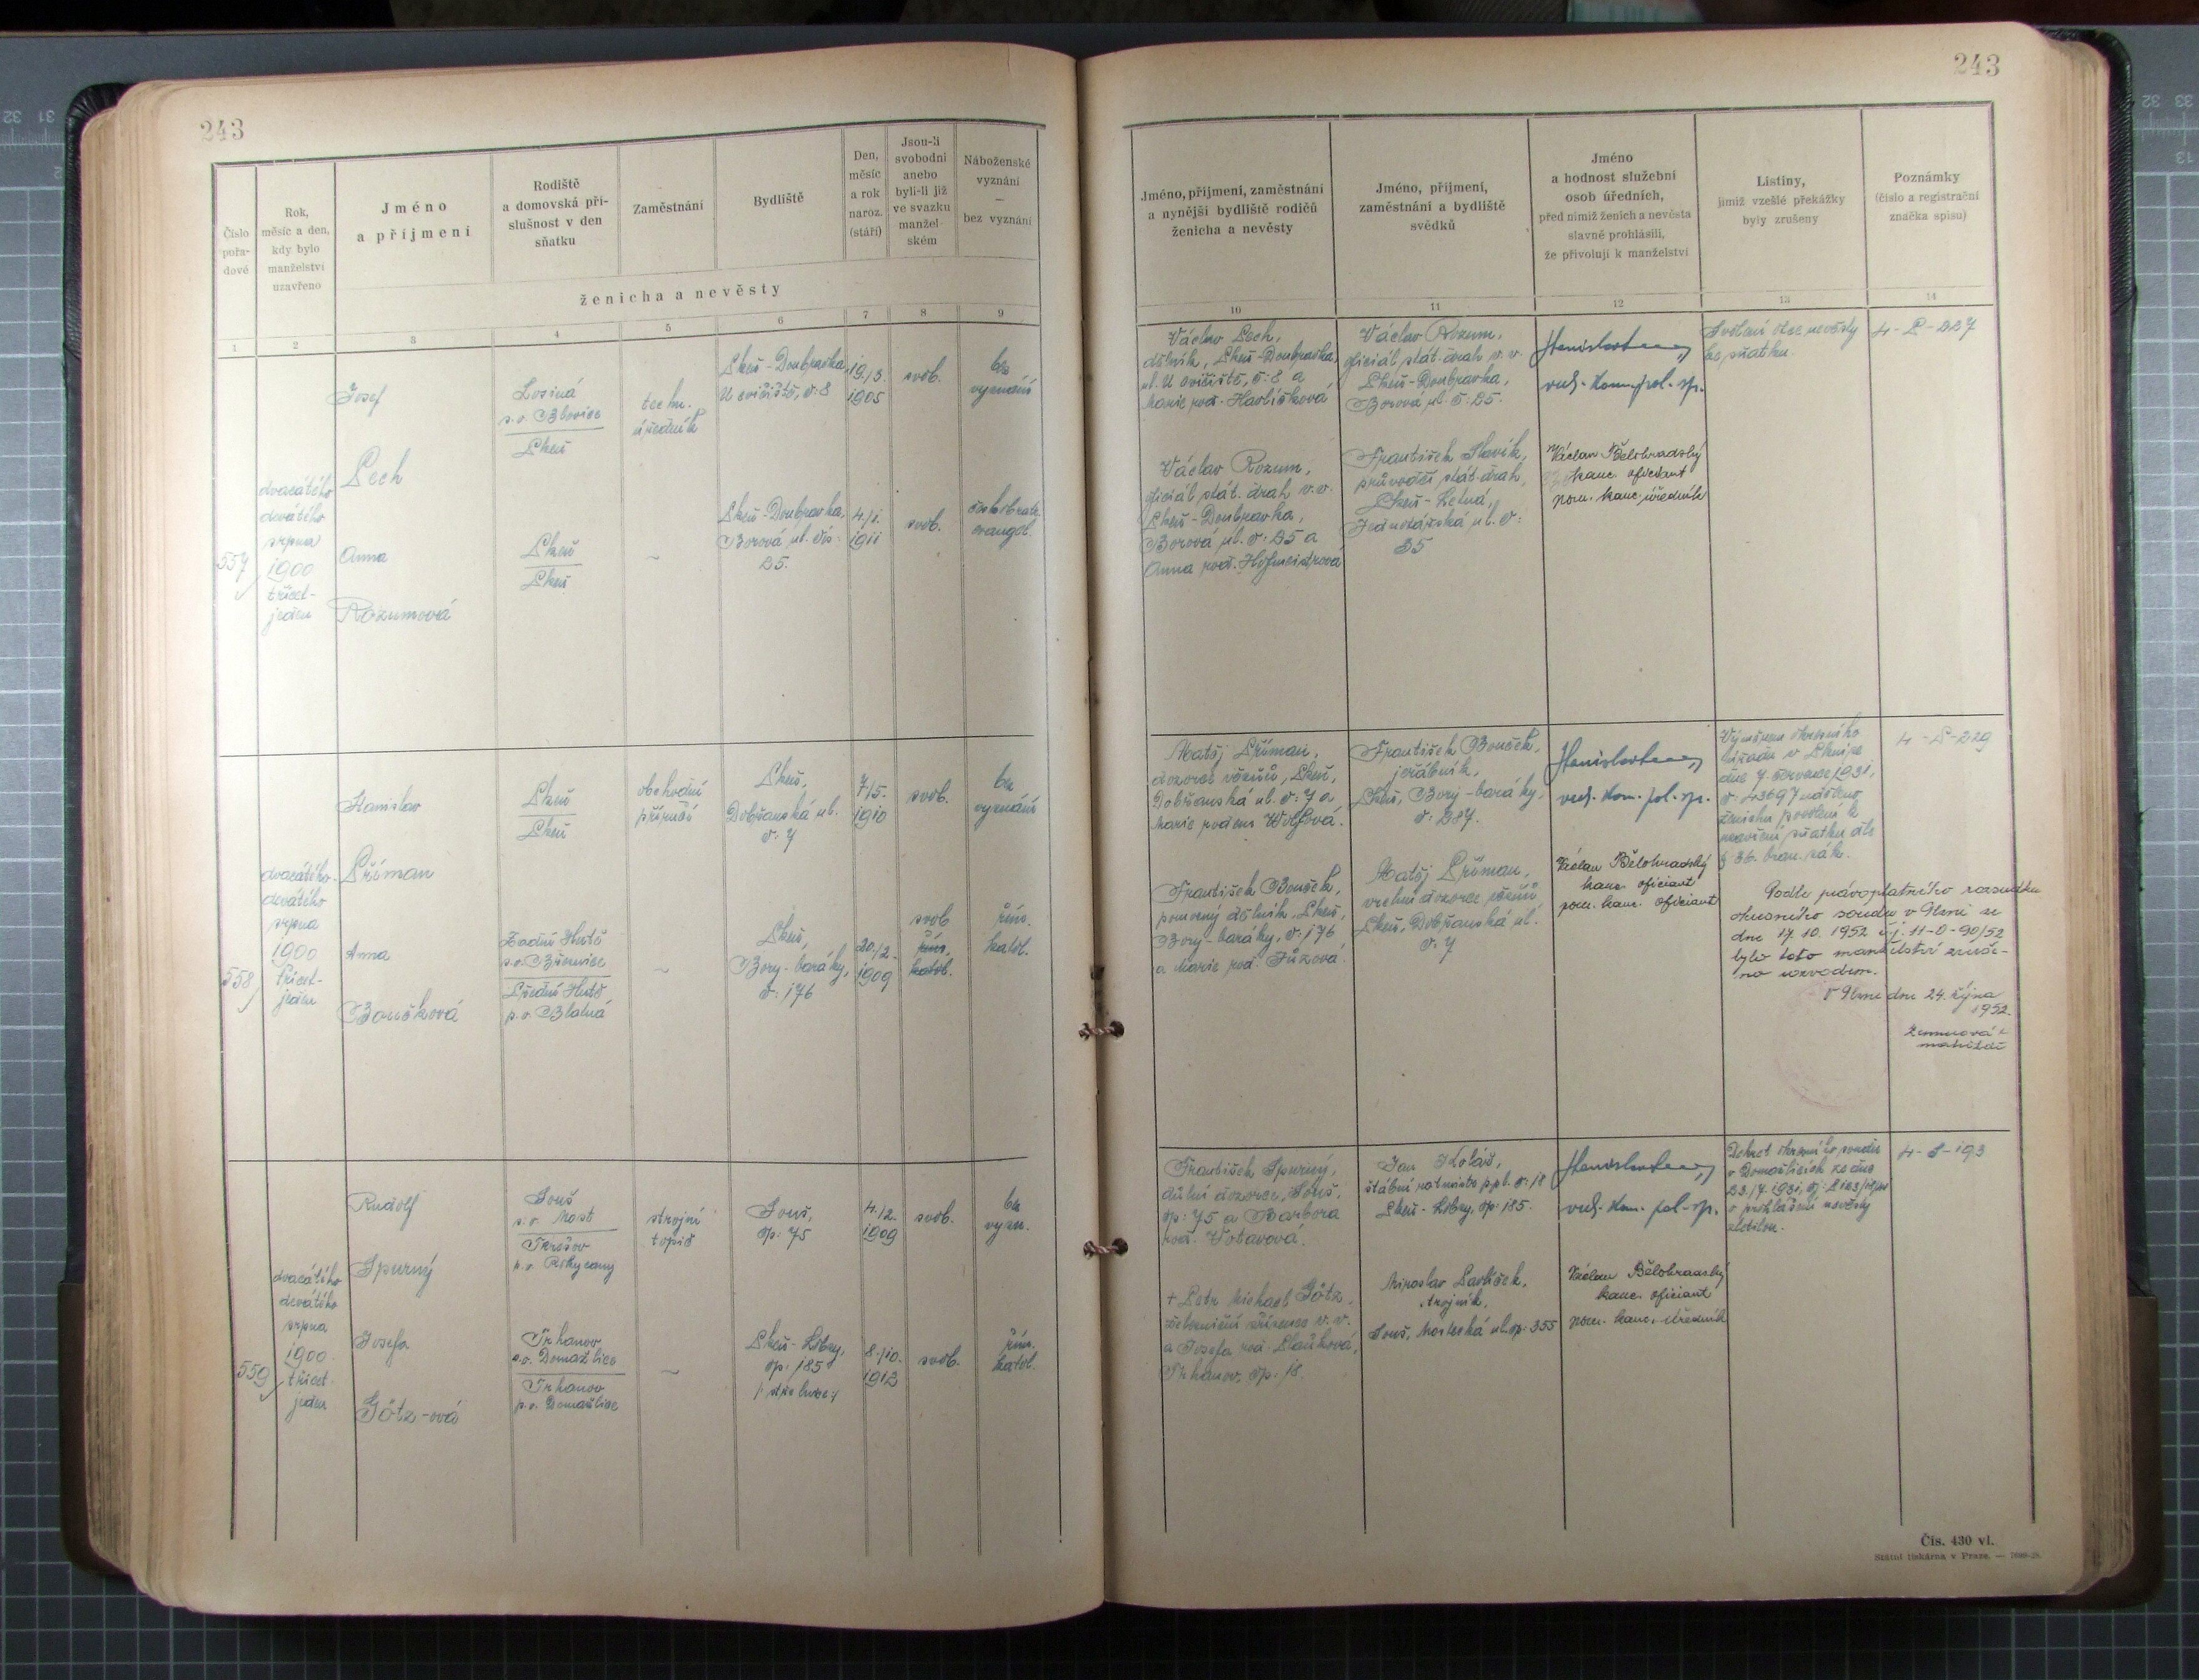 243
Číslo
pořa-
dové
Rok,
měsíc a den,
kdy bylo
manželství
uzavřeno
Jméno
a příjmení
Rodiště
a domovská pří-
slušnost v den
sňatku
Zaměstnání
Bydliště
Den,
měsíc
a rok
naroz.
(stáří)
Jsou-li
svobodni
anebo
byli-li již
ve svazku
manžel-
ském
Náboženské
vyznání
—
bez vyznání
ženicha a nevěsty
1 2 3 4 5 6 7 8 9
557
dvacátého
devátého
srpna
1900
třicet-
jeden
Josef
Pech
Losiná
p. o. Blovice
Plzeň
techn.
úředník
Plzeň-Doubravka,
U cvičiště, č: 8
19./3.
1905
svob.
bez
vyznání
Anna
Rozumová
Plzeň
Plzeň
~
Plzeň-Doubravka,
Borová ul. čís:
25.
4./1.
1911
svob.
českobratr.
evangel.
558
dvacátého-
devátého
srpna
1900
třicet-
jeden
Stanislav
Příman
Plzeň
Plzeň
obchodní
příručí
Plzeň,
Dobřanská ul.
č: 7
7./5.
1910
svob.
bez
vyznání
Anna
Boušková
Zadní Hutě
p. o.
Přední Hutě
p. o. Blatná
~
Plzeň,
Bory-baráky,
č: 176
20./2.
1909
svob
řím.
katol.
řím.
katol.
559
dvacátého
devátého
srpna
1900
třicet-
jeden
Rudolf
Spurný
Souš
p. o. Most
p. o. Rokycany
strojní
topič
Souš,
čp: 75
4./2.
1909
svob.
bez
vyzn.
Josefa
Götz-ová
Trhanov
p. o. Domažlice
Trhanov
p. o. Domažlice
~
Plzeň-Lobzy,
čp: 185
8./10.
1912
svob.
řím.
katol.
243
Jméno, příjmení, zaměstnání
a nynější bydliště rodičů
ženicha a nevěsty
Jméno, příjmení,
zaměstnání a bydliště
svědků
Jméno
a hodnost služební
osob úředních,
před nimiž ženich a nevěsta
slavně prohlásili,
že přivolují k manželství
Listiny,
jimiž vzešlé překážky
byly zrušeny
Poznámky
(číslo a registrační
značka spisu)
10 11 12 13 14
Václav Pech,
dělník, Plzeň-Doubravka,
ul. U cvičiště, č: 8 a
Marie roz. Havlíčková
Václav Rozum,
oficiál stát. drah v. v.
Plzeň-Doubravka,
Borová ul. č: 25 a
Anna roz. Hofmeistrová
Václav Rozum,
oficiál stát. drah v. v.
Plzeň-Doubravka,
Borová ul. č: 25.
František Slavík,
průvodčí stát. drah,
Plzeň-Letná,
ul. č:
35
ved. kom. pol. sp.
Václav Bělohradský
kanc. oficiant
pom. kanc. úředník
Svolení otce nevěsty
ke sňatku.
4-P-227
Matěj Příman,
dozorce vězňů, Plzeň,
Dobřanská ul. č: 7 a
Marie rozená Wolfová.
František Bouček,
pomocný dělník, Plzeň,
Bory-baráky, č: 176
a Marie roz. Jůzová.
František Bouček,
jeřábník,
Plzeň, Bory-baráky,
č: 287.
Matěj Příman,
vrchní dozorce vězňů
Plzeň, Dobřanská ul.
č: 7
ved. kom. pol. sp.
Václav Bělohradský
kanc. oficiant
pom. kanc. oficiant
Výměrem okresního
úřadu v Plzni ze
dne 7. července 1931,
č: 43697 uděleno
ženichu povolení k
uzavření sňatku dle
§ 36. bran. zák.
4-P-229
Podle právoplatného rozsudku
okresního soudu v Plzni ze
dne 17. 10. 1952 čj. 11-C-90/52
bylo toto manželství zruše-
no rozvodem.
V Plzni dne 24. října
1952.
matrikář
František Spurný,
důlní dozorce, Souš,
čp: 75 a Barbora
roz. Votavová.
+ Petr Michael Götz,
železniční zřízenec v. v.
a Josefa roz.
Trhanov, čp. 18.
Jan Kolář,
štábní rotmistr p. pl. č: 18
Plzeň-Lobzy, čp: 185.
Miroslav Pavlíček,
strojník,
Souš, Mostecká ul. čp: 355
ved. kom. pol. sp.
Václav Bělohradský
kanc. oficiant
pom. kanc. úředník
Dekret okresního soudu
v Domažlicích ze dne
23./7. 1931,
o prohlášení nevěsty
zletilou.
4-S-193
Čís. 430 vl.
Státní tiskárna v Praze. —